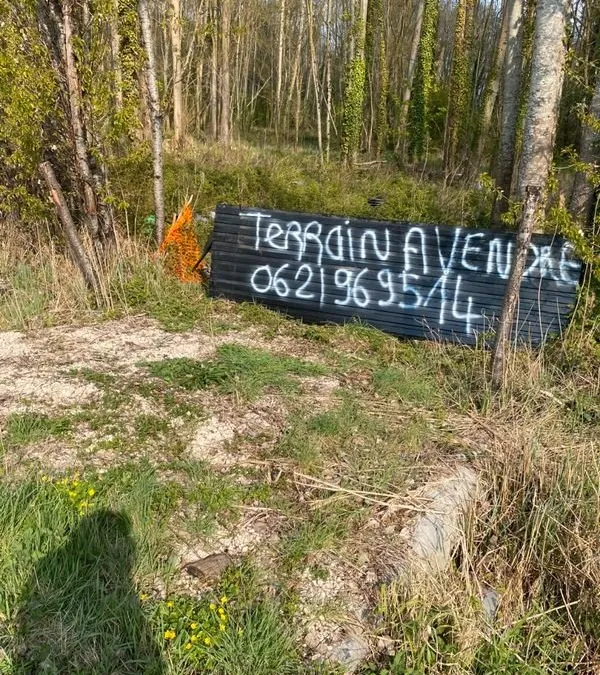 TERRAIN A VENDRE
0621969514